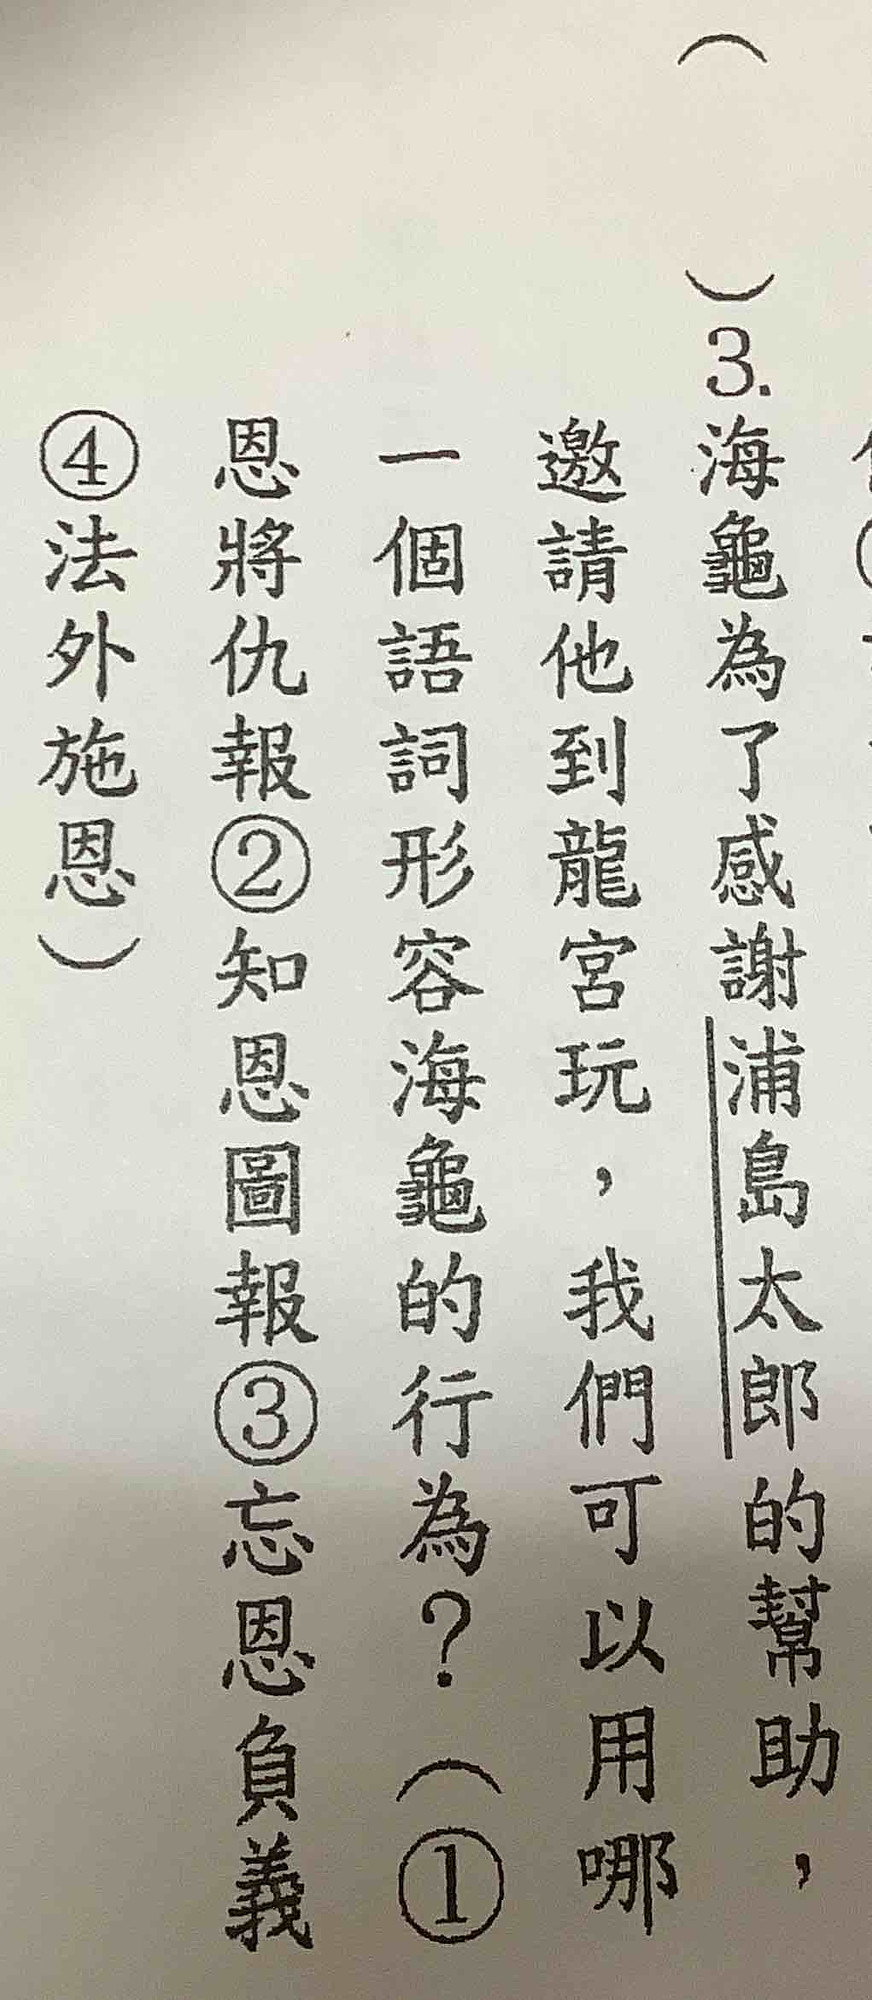 （　）3.海龜為了感謝浦島太郎的幫助，
邀請他到龍宮玩，我們可以用哪
一個語詞形容海龜的行為？（①
恩將仇報②知恩圖報③忘恩負義
④法外施恩）